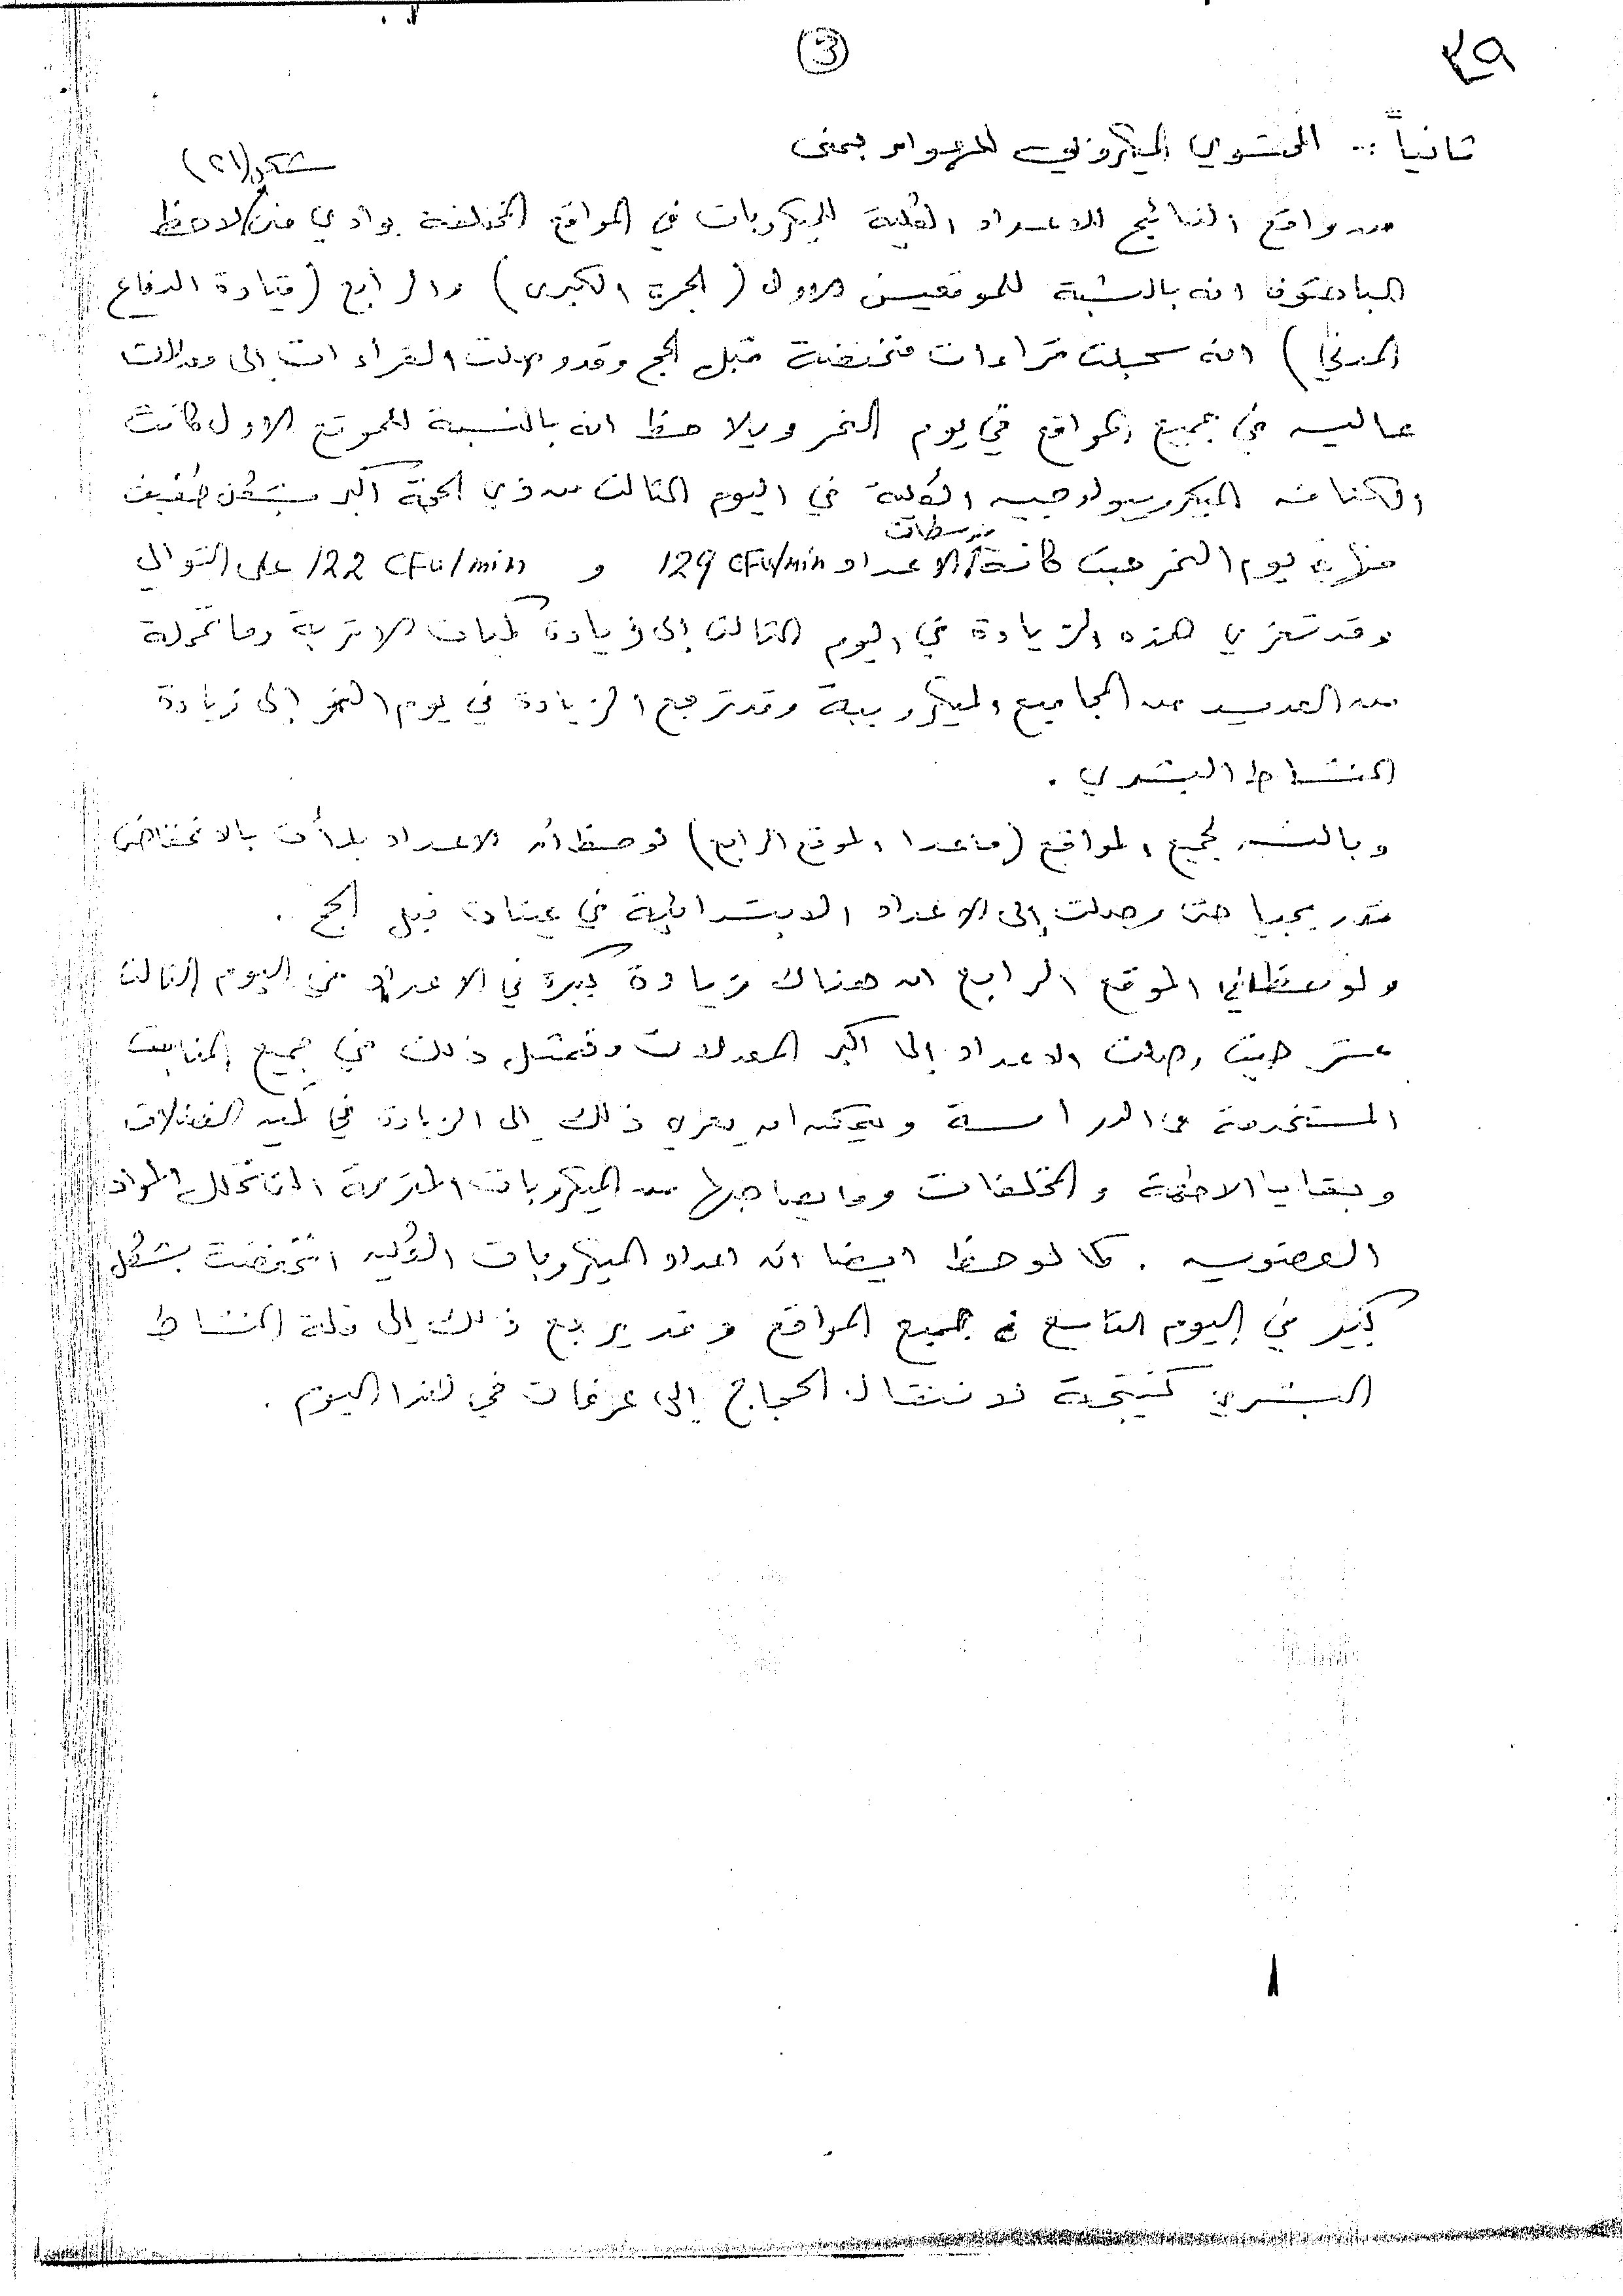 3
٣٩
ثانياً :- المحتوي الميكروبي للهواء بمنى
شكل (٢١)
من واقع النتائج للاعداد الكلية للميكروبات في المواقع المختلفة بوادي منى لاحظ
الباحثون انه بالنسبة للموقعين الاول (الجمرة الكبرى) والرابع (قيادة الدفاع
المدني) انه سجلت قراءات منخفضة قبل الحج وقد وصلت القراءات إلى معدلات
عاليه في جميع المواقع في يوم النحر ويلاحظ انه بالنسبة للموقع الاول كانت
الكثافه الميكروبيولوجيه الكلية في اليوم الثالث من ذي الحجة أكبر بشكل طفيف
متوسطات
منها في يوم النحر حيث كانت الاعداد 129 CFU/min و 122 CFU/min على التوالي
وقد تعزي هذه الزيادة في اليوم الثالث إلى زيادة كميات الاتربة وما تحمله
من العديد من المجاميع الميكروبية وقد ترجع الزيادة في يوم النحر إلى زيادة
النشاط البشري .
وبالنسبه لجميع المواقع (ماعدا الموقع الرابع) لوحظ أن الاعداد بدأت بالانخفاض
تدريجيا حتى وصلت إلى الاعداد الابتدائية في عينات قبل الحج ..
ولوحظ في الموقع الرابع ان هناك زيادة كبيرة في الاعداد في اليوم الثالث
عشر حيث وصلت الاعداد إلى أكبر المعدلات وتمثل ذلك في جميع المنابت
المستخدمة في الدراسة ويمكن ان يعزي ذلك إلى الزيادة في كميه الفضلات
وبقايا الاطعمة والمخلفات وما يصاحبها من الميكروبات المترممة التي تحلل المواد
العضويه . كما لوحظ ايضا ان اعداد الميكروبات الكليه انخفضت بشكل
كبير في اليوم التاسع في جميع المواقع وقد يرجع ذلك إلى قلة النشاط
البشري كنتيجة لانتقال الحجاج إلى عرفات في هذا اليوم .